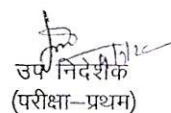 उप निदेशक
(परीक्षा–प्रथम)